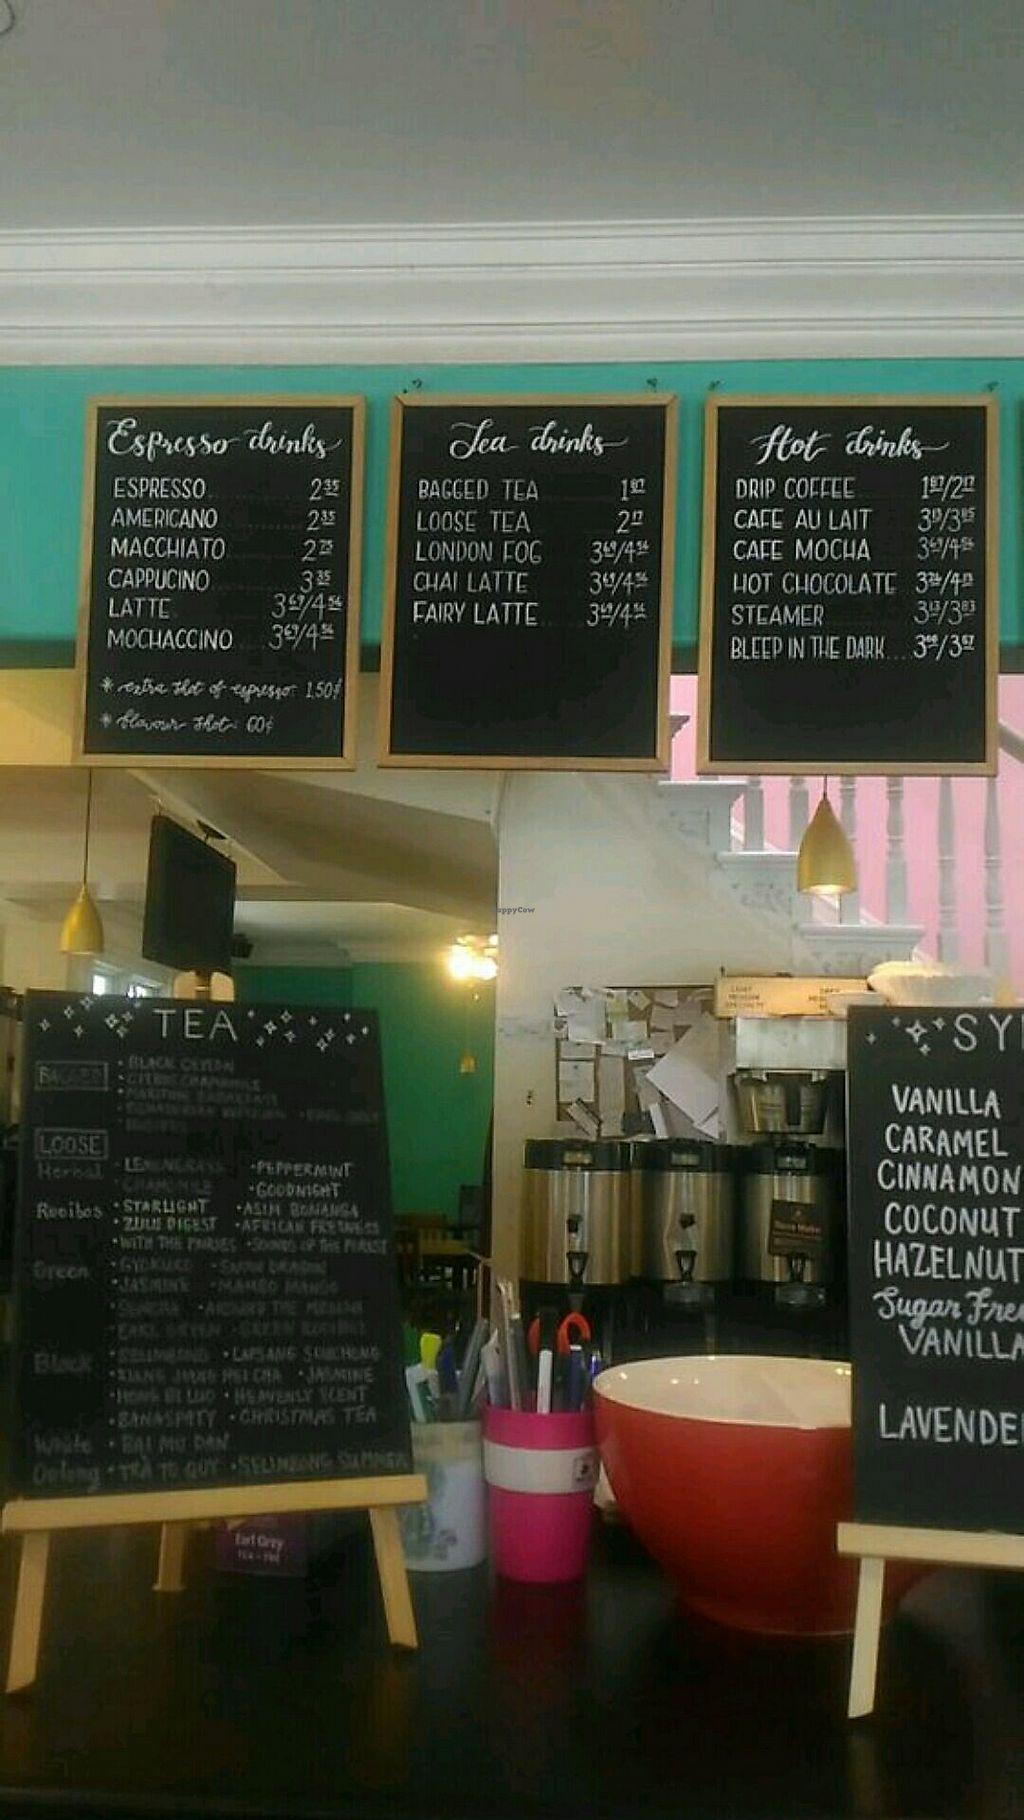 Espresso drinks
ESPRESSO 2 35
AMERICANO 2 35
MACCHIATO 2 75
CAPPUCINO 3 35
LATTE 3 69/4 56
MOCHACCINO 3 69/4 56
* extra shot of espresso: 1.50¢
* flavour shot: 60¢
Tea drinks
BAGGED TEA 1 87
LOOSE TEA 2 17
LONDON FOG 3 69/4 56
CHAI LATTE 3 69/4 56
FAIRY LATTE 3 69/4 56
Hot drinks
DRIP COFFEE 1 87/2 17
CAFE AU LAIT 3 13/3 85
CAFE MOCHA 3 69/4 56
HOT CHOCOLATE
STEAMER 3 13/3 83
BLEEP IN THE DARK
HappyCow
TEA
BAGGED
• BLACK CEYLON
• CITRUS CHAMOMILE
LOOSE
Herbal • LEMONGRASS • PEPPERMINT
• CHAMOMILE • GOODNIGHT
Rooibos • STARLIGHT • ASIM BONANGA
• ZULU DIGEST • AFRICAN FRESHNESS
• WITH THE FAIRIES • SOUNDS OF THE FOREST
Green • GYOKURO • SNOW DRAGON
• JASMINE • MAMBO MANGO
• SENCHA • AROUND THE
• EARL GREEN • GREEN ROOIBOS
Black • SELIMBONG • LAPSANG SOUCHONG
• JASMINE
• HONG BI LUO • HEAVENLY SCENT
• BANASPATY • CHRISTMAS TEA
White • BAI MU DAN
Oolong • TRA TO QUY • SELIMBONG SUMMER
Earl Grey
SY
VANILLA
CARAMEL
CINNAMON
COCONUT
HAZELNUT
Sugar Free
VANILLA
LAVENDE